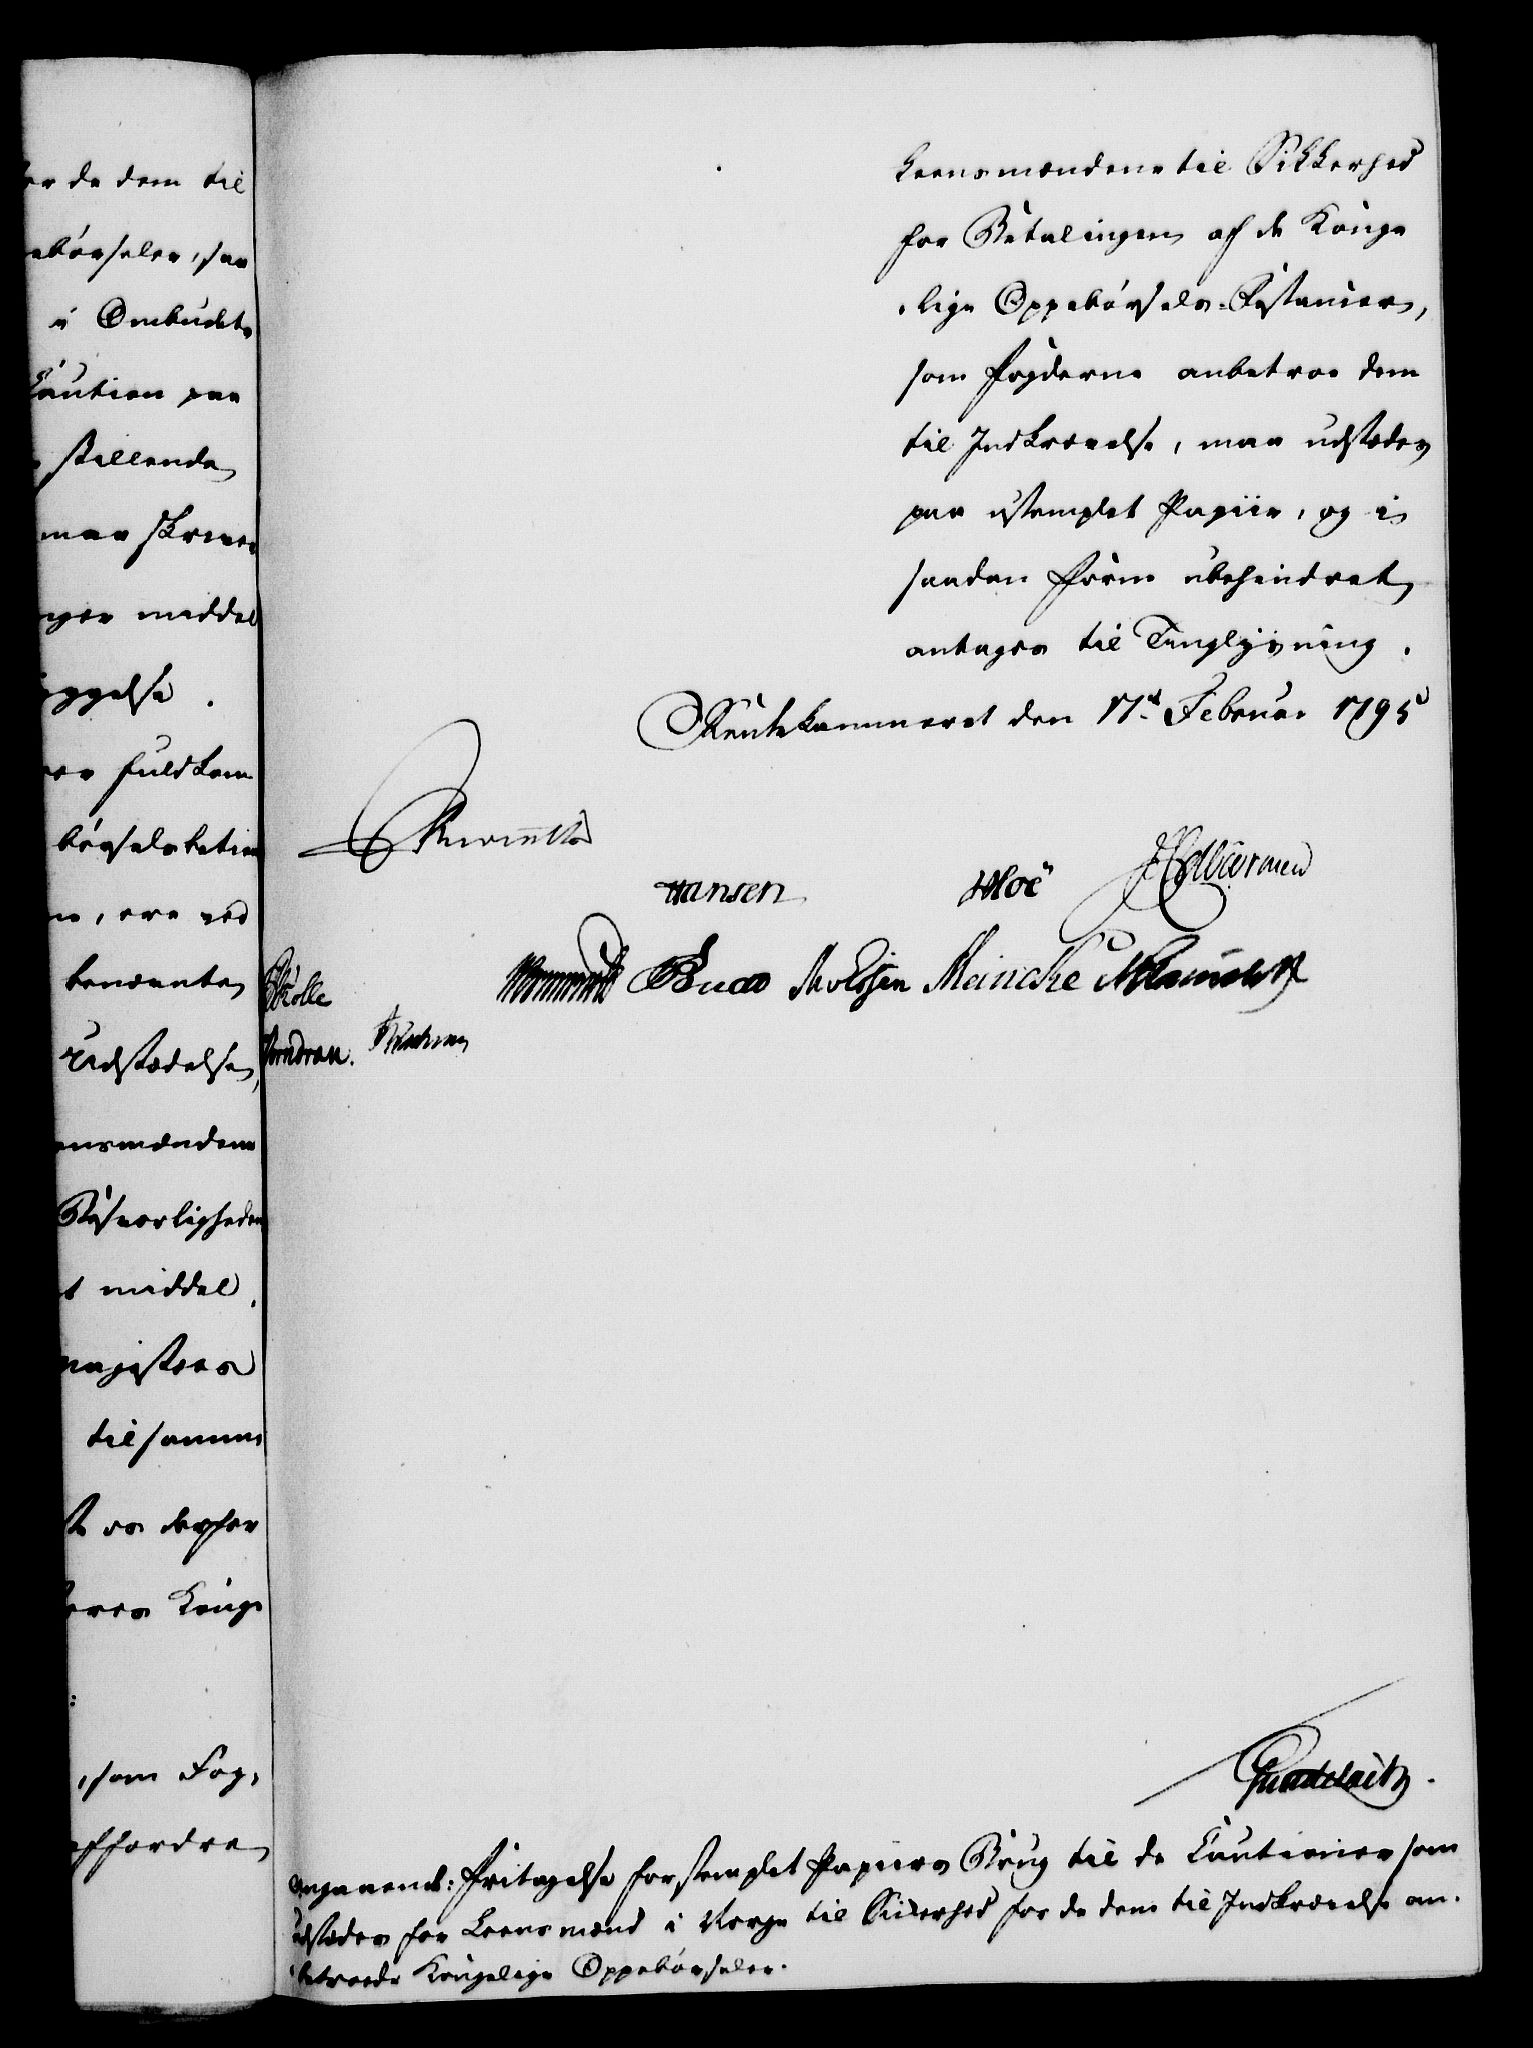 er de dem til
ebørseler, saa
i Ombudets
Caution paa
stillende
maa skrives
nger middel
yggelse.
fuldkom
børselsbetien
ere ved
benævnte
Udstædelse,
ensmændene
Risvorligheden
t middel
magisters
til samme
derfor
eres Konge
:
, som Fog,
affordre
Leensmændene til Sikkerhed
for Betalingen af de Konge
lige Oppebørsels-Restancer,
som Fogderne anbetroe dem
til Indkrævelse, maa udstædes
paa ustemplet Papiir, og i
saadan Form ubehindret
antages til Tinglysning.
Rentekammeret den 17de Februar 1795
Reventlow
Hansen Hoë
Wormskiold Buch Meincke
Rolle
Gundelach.
Angaaende: Fritagelse for stemplet Papiirs Brug til de Cautioner som
udstædes for Leensmænd i Norge til Sikkerhed for de dem til Indkrævelse an-
betroede Kongelige Oppebørseler.